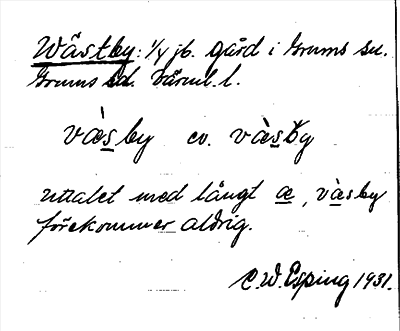 Wästby: 1/4 jb. gård i Grums sn.
Grums hd. Värml. l.
vä̀s̲by ev. vä̀s̲ƀy
Uttalet med långt æ̲, vä̲̀sby
förekommer aldrig.
C.W. Esping 1931.